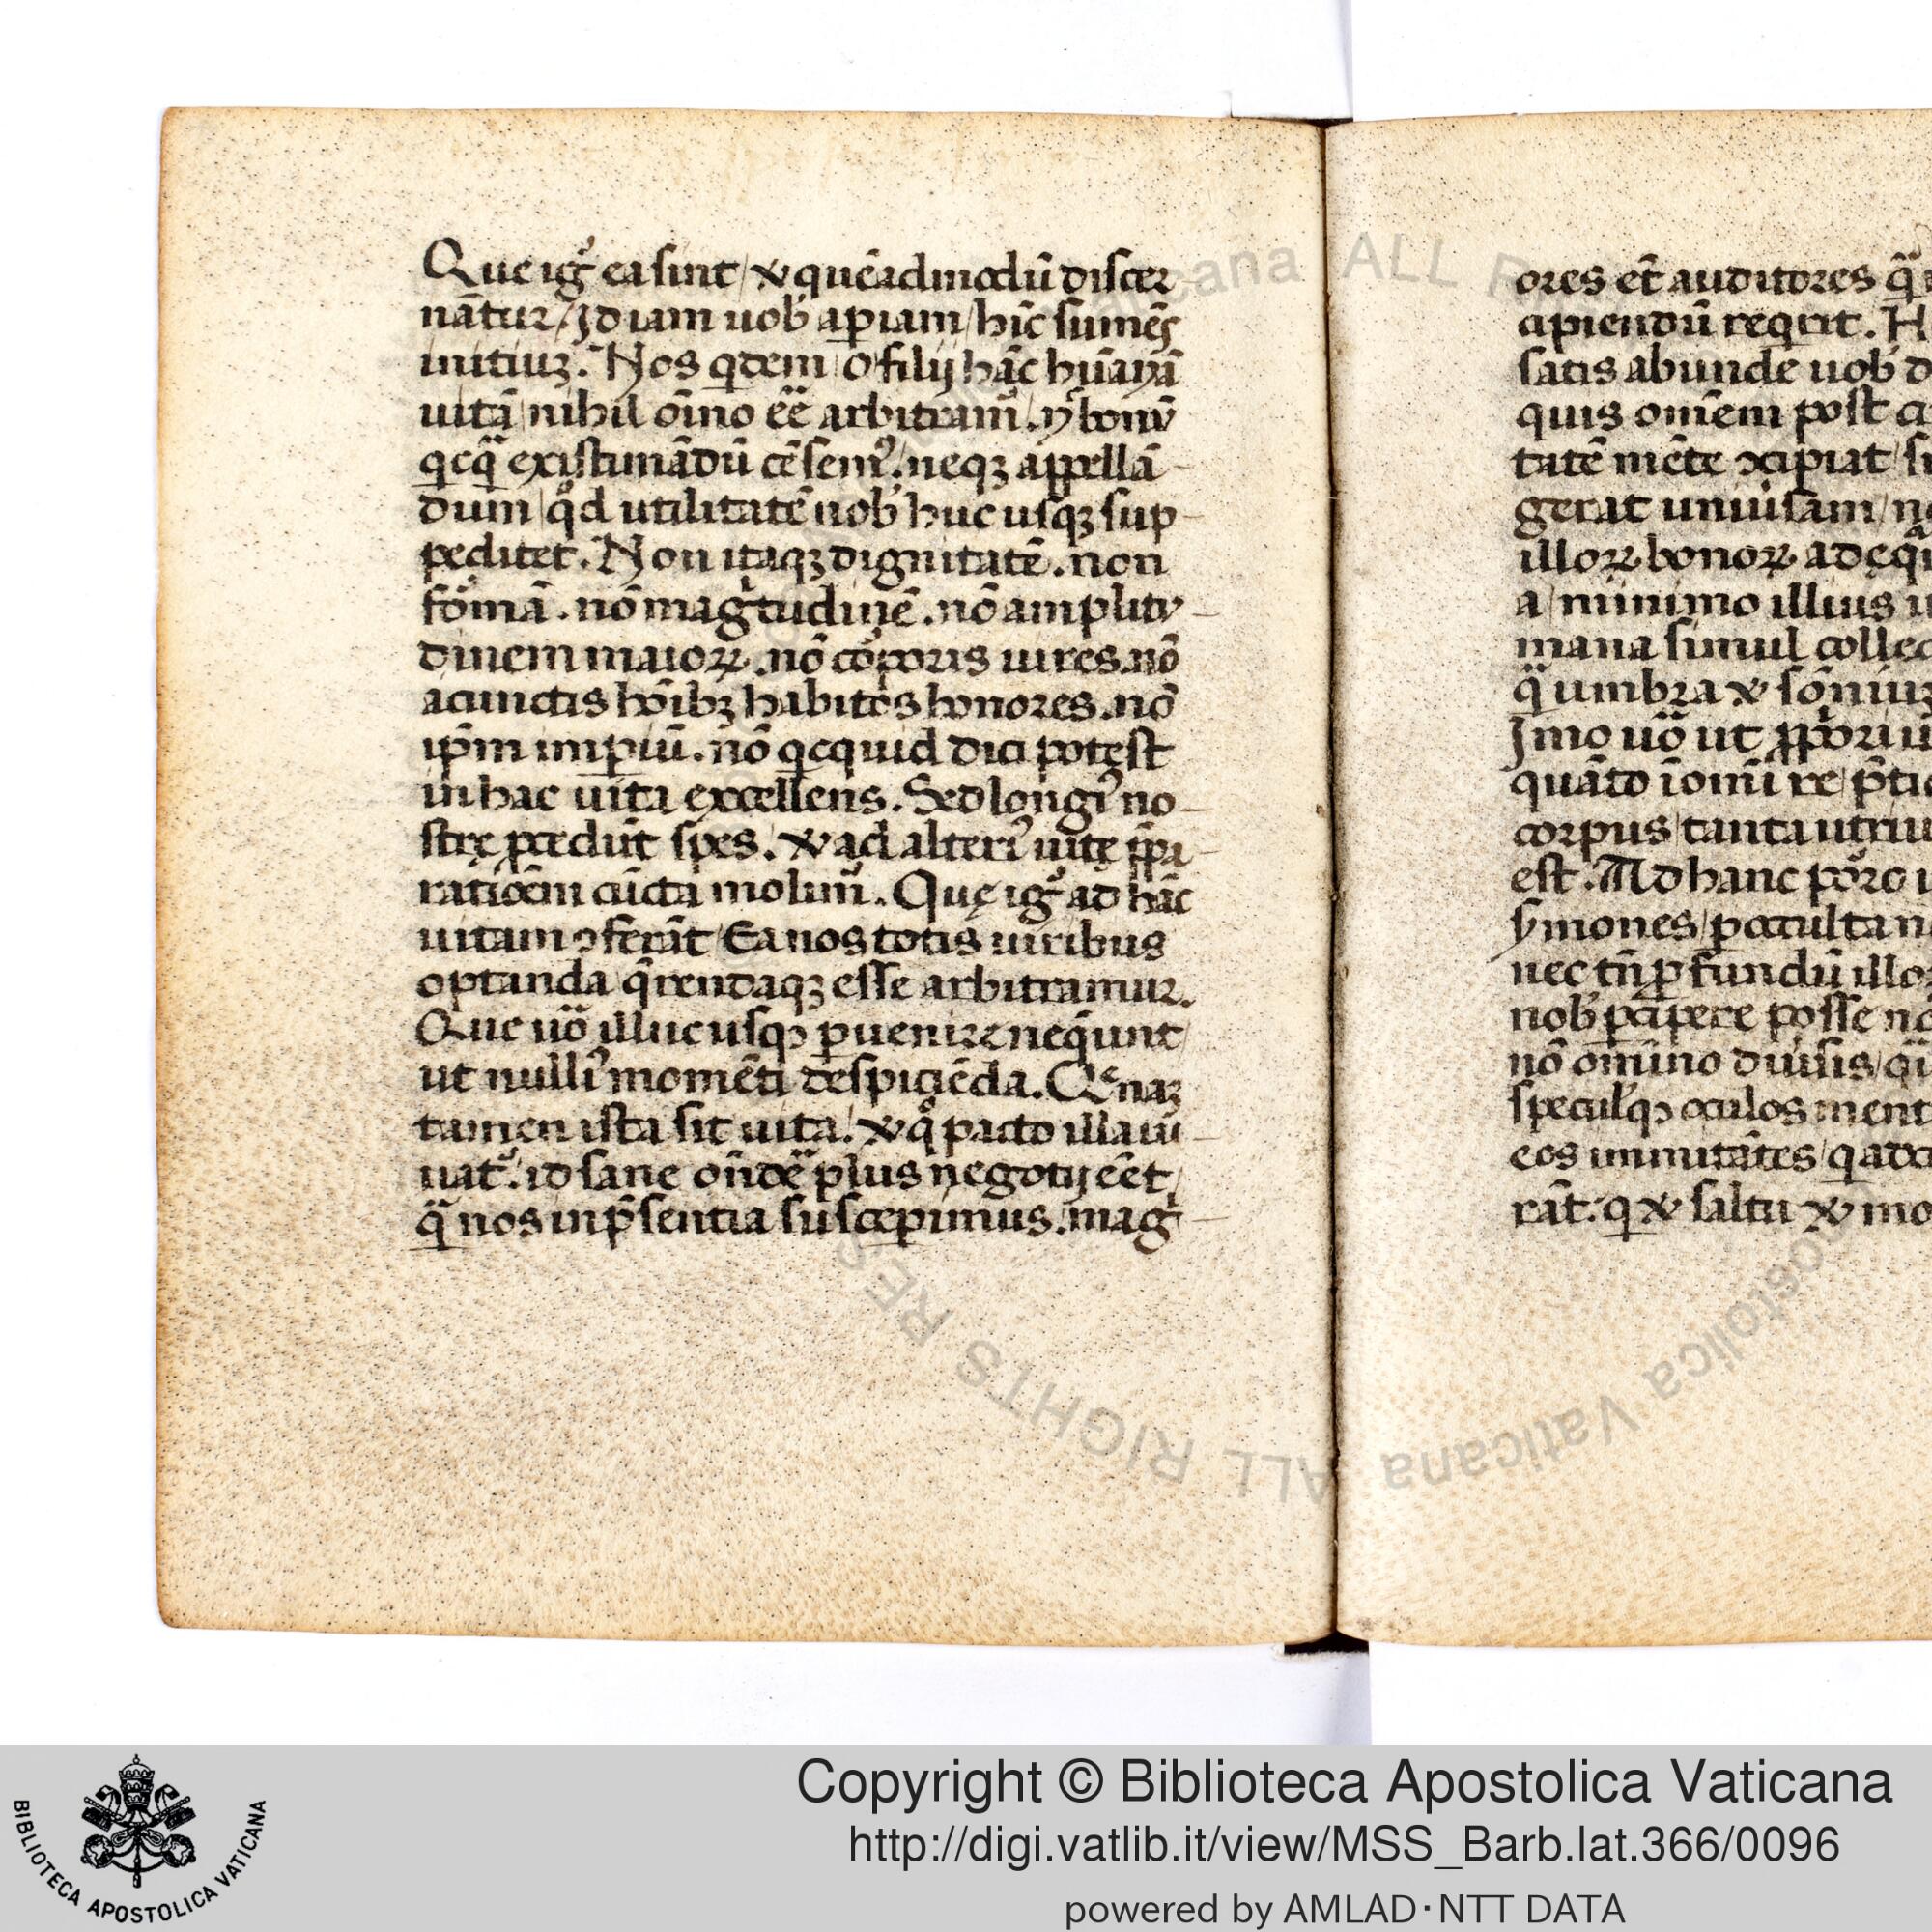 Que igr̃ ea sint / & quēadmodū discer
nātur / Id iam uob̃ ap̱iam / hīc sumēs
initiuꝫ. Nos qdem / o filij hāc hūanā
uitā / nihil oīno eē̃ arbitram̃. / bonū
qcq̃ existimādū cēsemꝰ. neqꝫ appellā
dum / qd̊ utilitatē nob̃ huc usqꝫ sup
peditet. Non itaqꝫ dignitatē. non
fōmā. nō magtudinē. nō amplitu
dinem maioꝝ. nō coꝑoris uires. nō
acunctis hōibꝫ habitos honores. nō
ip̄m imꝑiū. nō qcquid dici potest
in hac uita excellens. Sed longiꝰ no
strę ꝓcedūt spes. & ad alteriꝰ uitę p̄pa
ratiōem cūcta molim̃. Quę igr̃ ad hāc
uitam ꝯferāt / Ea nos totis uiribus
optanda q̄rendaqꝫ esse arbitramur.
Que uo̊ illuc usqꝫ ꝑuenire neq̃unt /
ut nulliꝰ momēti despiciēda. Qᵉnaꝫ
tamen ista sit uita. & q̊ pacto illa uī
uat̃. id sane on̄de̊ plus negotij eēt /
q̃ nos in p̄sentia suscepimus. mag
ores et̄ auditores q̃
apiendū reqrit. H
satis abunde uob̃ d
quis omēm post
tatē mēte ꝯcipiat / si
gerat uniũsam / n
illoꝝ bonoꝝ adęq
a / minimo illius u
mana simul collec
q̃ umbra & sōniuꝫ
Imo uo̊ ut ꝓp̃ori u
quāto īomi re / p̄ti
corpus / tanta utriu
est. Ad hanc poro u
ẜmones / ꝑoccultan
nec tn̄ ꝓfundū illo
nob̃ ꝑcipere posse no
nō omīno diũsis / qi
specul̃qꝫ oculos ment
eos imitātes / q adoc
rāt. q & saltu & mo
ALL RIGHTS RES
ostolica Vaticana
Copyright © Biblioteca Apostolica Vaticana
http://digi.vatlib.it/view/MSS_Barb.lat.366/0096
powered by AMLAD·NTT DATA
BIBLIOTECA APOSTOLICA VATICANA